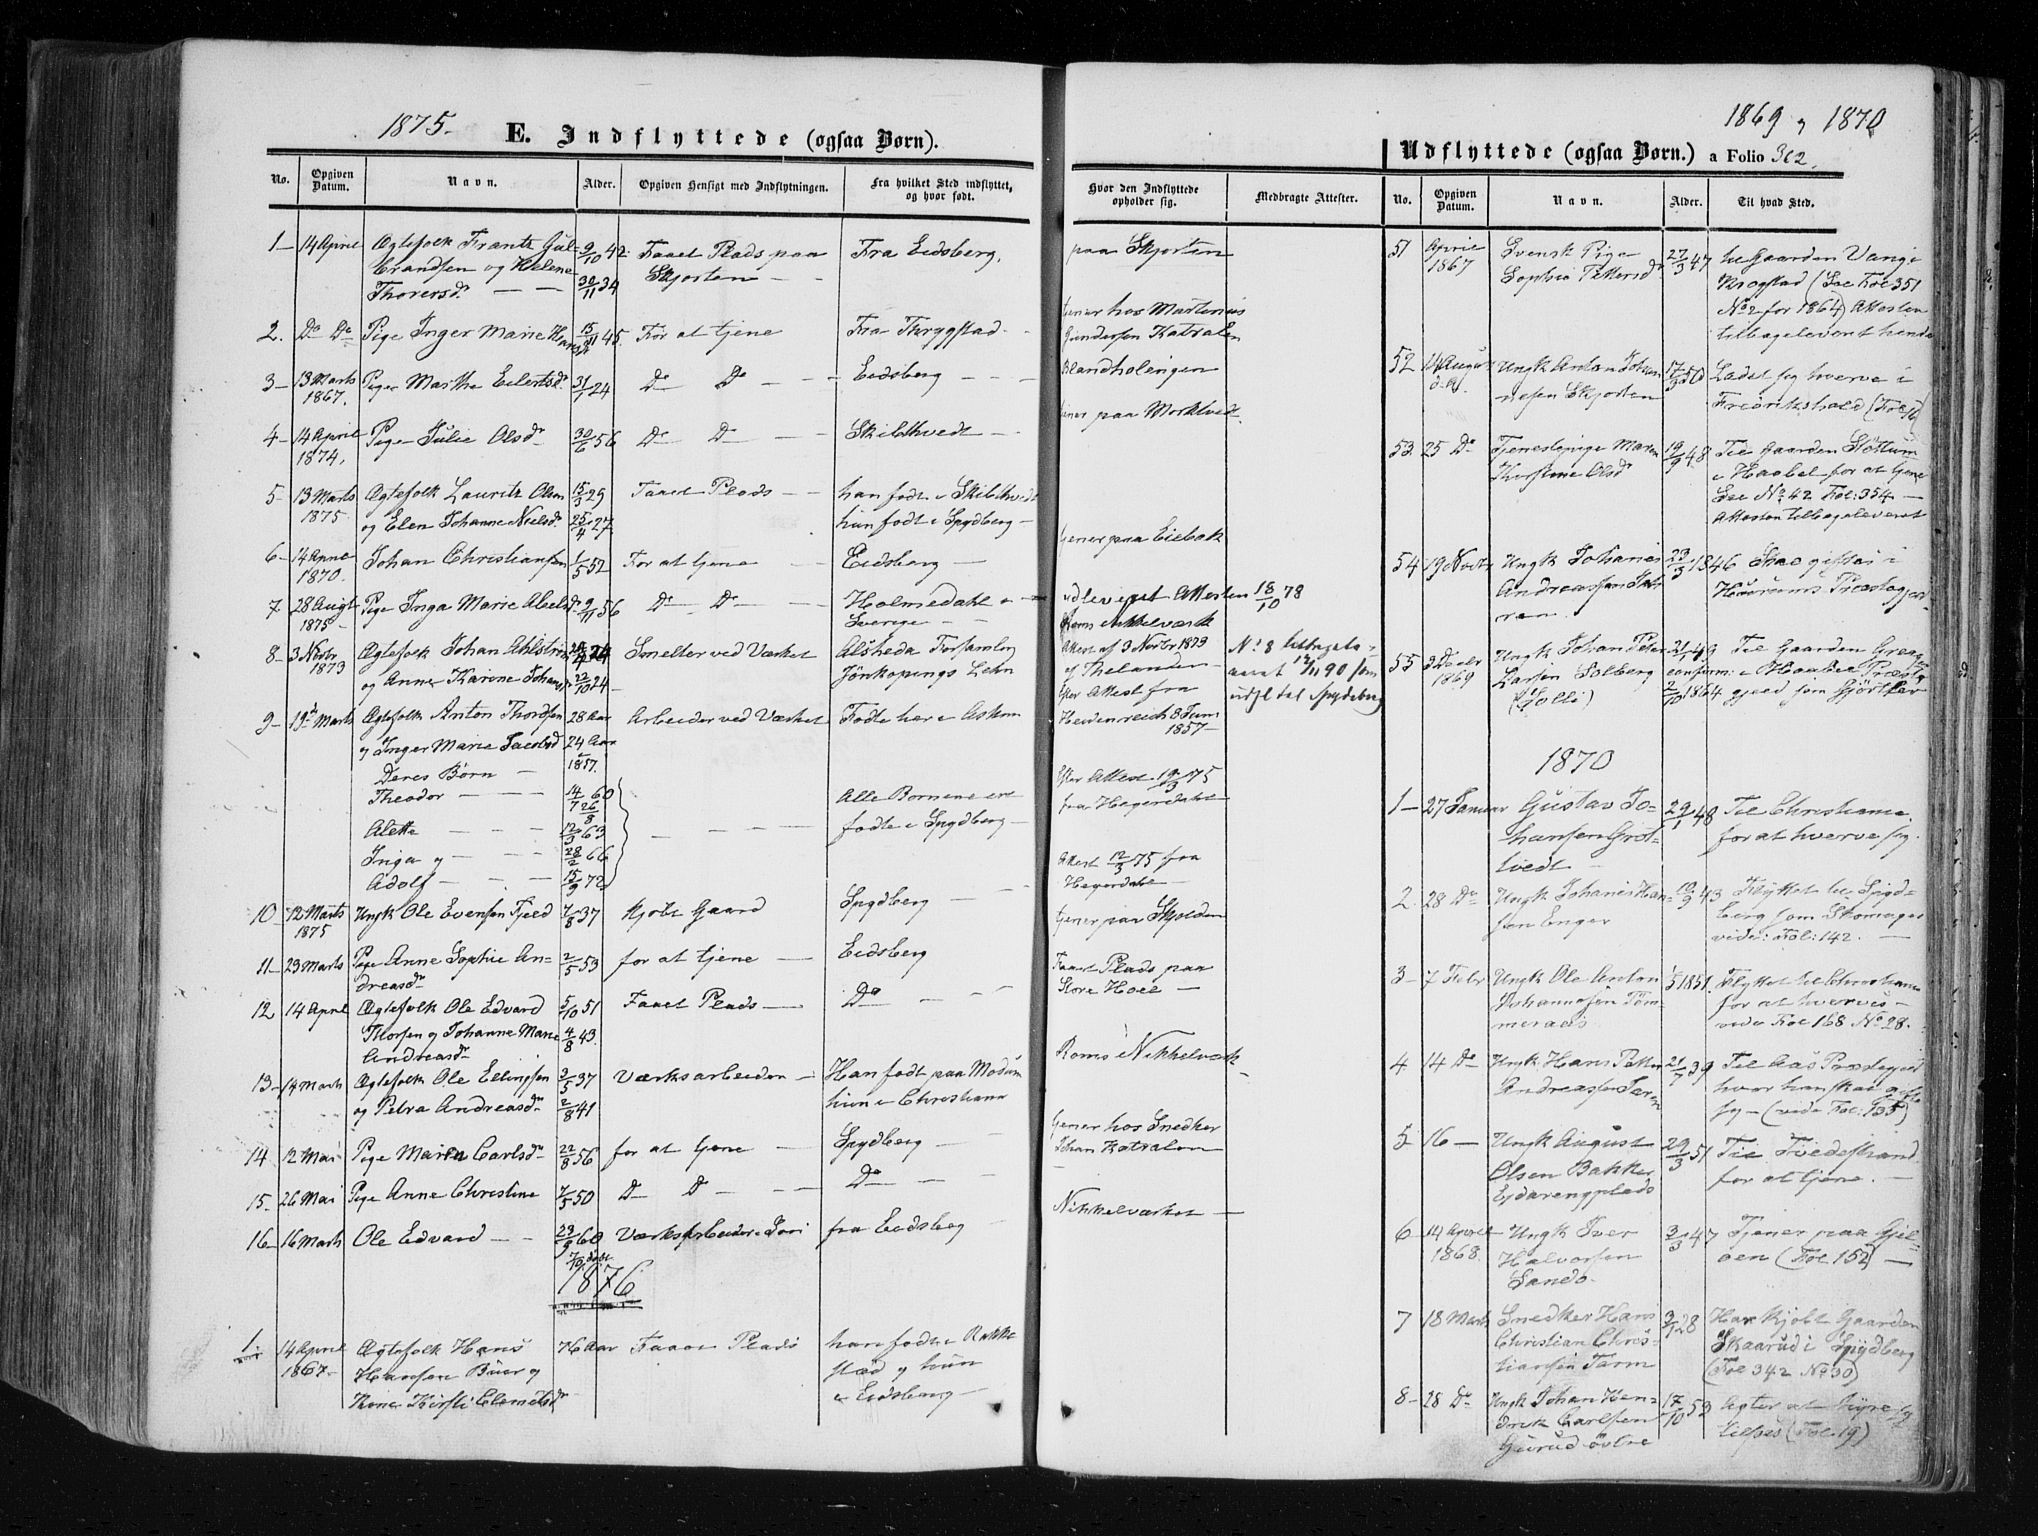 1875.
E. Indflyttede (ogsaa Børn).
No. Opgiven Datum. Navn. Alder. Opgiven Hensigt med Indflytningen. Fra hvilket Sted indflyttet, og hvor født.
1 14 April Ægtefolk Frantz Gul- 9/10 42 Faaet Plads paa Fra Eidsberg.
brandsen og Helene Skjorten
Thorersdr 30/11 34
2. Do Do Pige Inger Marie 15/11 45. For at tjene Fra Thrygstad
3 13 Marts Pige Marthe Eilertsdr 31/1 24 Do Do Eidsberg
1867.
4 14 April Pige Julie Olsdr 30/6 56 Do D Skibthvedt
1874.
5 13 Marts Ægtefolk Lauritz Olsen 15/3 29 Faaet Plads han født i Skibthvedt
1875 og Elen Johanne Nielsdr 25/4 27 hun født i Spydberg
6 14 April Johan Christiansen 1/5 52 For at tjene Eidsberg
1870.
7 28 Augt Pige Inga Marie 9/11 56 Do Do Holmedahl i
1875 Sverige
8 3 Novbr Ægtefolk Johan Ahlström 24 Smelter ved Værket Alsheda Forsamling
1873 og Anne Karine 22/10 24 Jönkopings Lehn
9 19de Marts Ægtefolk Anton Thordsen 28 Aar Arbeider ved Værket Fødte her i Askim
og Inger Marie Jacobsd 24 Aar
1857.
Deres Børn
Theodor 14/7 60 Alle Børnene ere
Alette 12/3 63 fødte i Spydberg
Inga og 28/2 66
Adolf 15/9 72
10 12 Marts Ungk Ole Evensen Fjeld 7/8 37 kjøbt Gaard Spydberg
1875
11 23 Marts Pige Anne Sophie An- 2/5 53 for at tjene Eidsberg
dreasdr
12 14 April Ægtefolk Ole Edvard 5/10 51 Faaet Plads Do
Thorsen og Johanne Marie 4/8 43.
Andreasdr
13 14 Marts Ægtefolk Ole Ellingsen 3/5 37 Værksarbeider Han født paa Modum
og Petra Andreasdr 2/8 41 hun i Christiania
14 12 Mai Pige Maria Carlsdr 22/8 56 for at tjene Spydberg
15. 26 Mai Pige Anne Christine 7/5 50 D D Do
16 16 Marts Ole Edvard 23/9 60 Værksarbeider fra Eidsberg
1876
1. 14 April Ægtefolk Hans 76 Aar Faaet Plads han født i Rakke-
1867 Hansen Buer og stad og hun
Kone Kirsti Clemetsdr i Eidsberg
1869 og 1870
Udflyttede (ogsaa Børn.) a Folio 362.
Hvor den Indflyttede opholder sig. Medbragte Attester. No. Opgiven Datum. Navn. Alder. Til hvad Sted.
paa Skjorten
tjener hos Martinius
Gundersen Katralen
Blandholengen
tjener paa Morktvedt
tjener paa Eiebak
udleveret Attesten 18/10 78
Roms Nikkelværk
Attest af 3 Novbr 1873 No 8
af Thelander 12/11 90 som
Efter Attest fra udfl til Spydeberg
Heidenreich 8 Juni
1857
Efter Attest 19/3 75
fra Hegerdahl
Attest 12/3 75 fra
Hegerdahl
tjener paa Skolden
Faaet Plads paa
Store Hoel
Roms Nikkelværk
tjener hos Snedker
Johan Katralen
Nikkelværket
51 April Svensk Pige 27/3 47 til Gaarden Vang i
1867 Sophia Pettersdr Krogstad (See Fol 351
No 2 for 1864) Attesten
tilbageleveret hende
52 14 August Ungk Anton Johan- 17/3 50 Ladet sig hverve i
d.A. nesen Skjorten Fredrikshald
53 25 Do Tjenestepige Maren 19/9 48 Til Gaarden Slottum
Thorstine Olsdr i Haabøl for at tjene
See No 42 Fol: 354
Attesten tilbageleveret
54 19 Novbr Ungk Johanes 23/3 1846 Skal giftes i
Andreassen Hurums Præstegjeld
55 3 Decbr Ungk Johan Peter 21/1 49 Til Gaarden
1869 Larsen Solberg confirm: i Haabøl Præste-
(Solli) 2/10 1864 gjeld som
1870
1 27 Januar Gustav Jo- 29/1 48 Til Christiania
hansen Grøt- for at hverve sig.
vedt
2 28 Do Ungk Johanes Han- 10/9 43 Flyttet til Spyd-
sen Enger berg som Skomager
vide: Fol: 142.
3 7 Febr Ungk Ole Anton 1/5 1851 Flyttet til Christiania
Johannesen Tøm- for at hverves
meraas vide Fol 168 No 28.
4 14 Do Ungk Hans Petter 21/7 39 Til Aas Præstegjeld
Andreassen hvor han skal gifte
sig (vide Fol: 135)
5 16 Ungk August 29/3 51 Til Tvedestrand
Olsen Bakker for at tjene.
6 14 April Ungk Iver 2/3 47 Tjener paa Gjel-
1868. Halvorsen øen (Fol 152)
Sando
7 18 Marts Snedker Hans 3/1 28 Har kjøbt Gaarden
Christian Chris- Skaarud i Spydberg
tiansen (Fol 342 No 30)
8 28 Do Ungk Johan Hen- 17/10 52 Agter at hyre sig
drik Carlsen tilsøes (Fol. 19)
Gurud øvtre